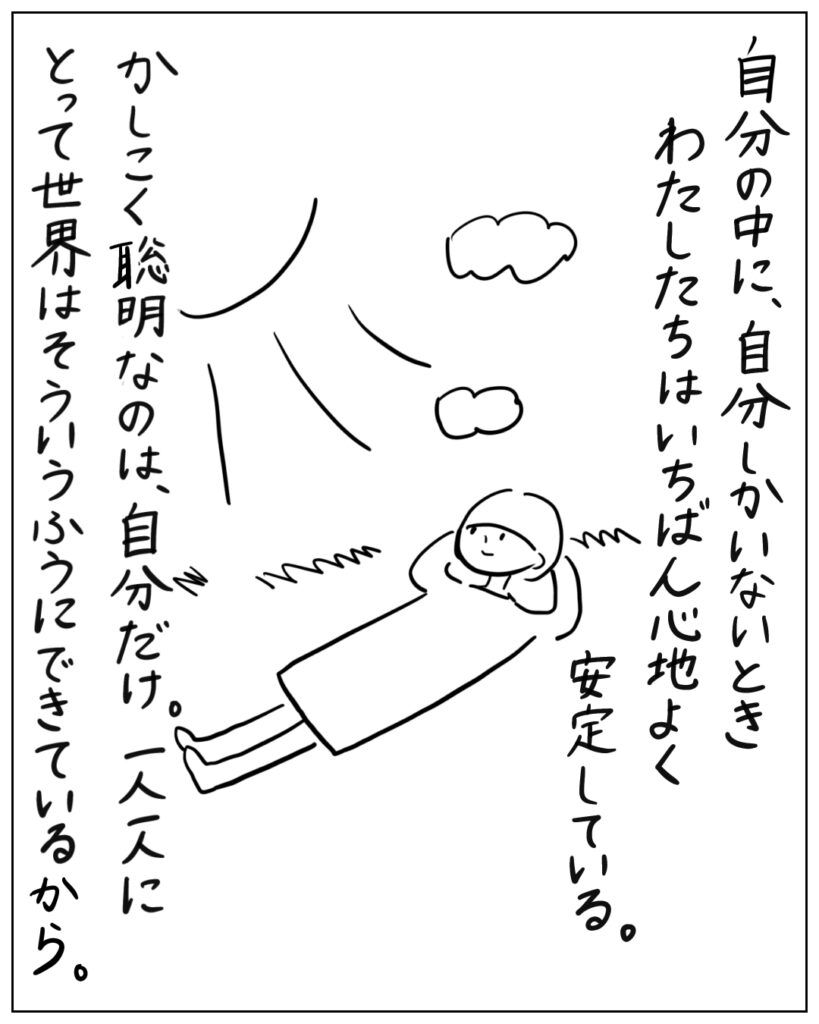 自分の中に、自分しかいないとき
わたしたちはいちばん心地よく
安定している。
かしこく聡明なのは、自分だけ。一人一人に
とって世界はそういうふうにできているから。